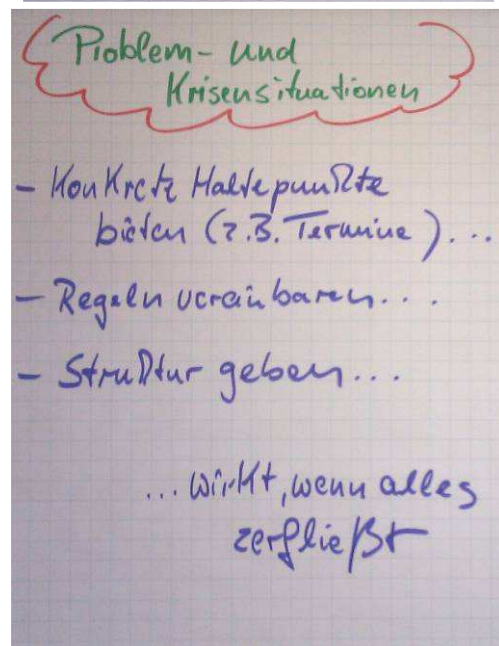 Problem- und
Krisensituationen
- Konkrete Haltepunkte
bieten (z.B. Termine)...
- Regeln vereinbaren...
- Struktur geben...
...wirkt, wenn alles
zerfließt